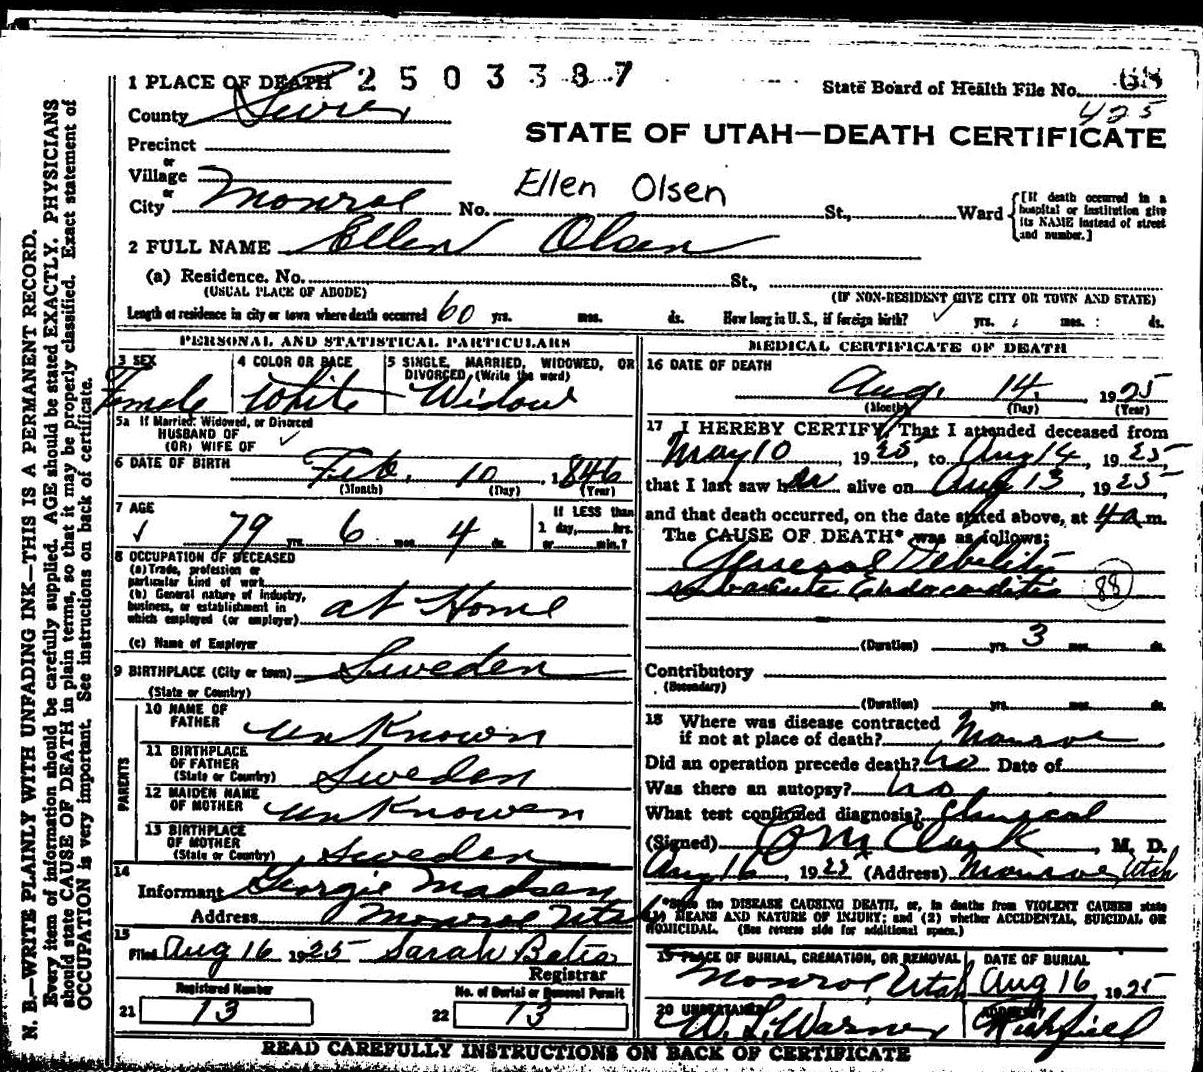 1 PLACE OF DEATH 2503387
State Board of Health File No. 68
425
County Sevier
STATE OF UTAH—DEATH CERTIFICATE
Precinct
or
Village
or
City Monroe No. Ellen Olsen St., Ward [If death occurred in a hospital or institution give its NAME instead of street and number.]
2 FULL NAME Ellen Olsen
(a) Residence. No. St.,
(USUAL PLACE OF ABODE) (IF NON-RESIDENT GIVE CITY OR TOWN AND STATE)
Length of residence in city or town where death occurred 60 yrs. mos. ds. How long in U.S., if foreign birth? ✓ yrs. mos. ds.
PERSONAL AND STATISTICAL PARTICULARS
3 SEX
Female
4 COLOR OR RACE
White
5 SINGLE, MARRIED, WIDOWED, OR
DIVORCED (Write the word)
Widow
5a If Married, Widowed, or Divorced
HUSBAND OF
(OR) WIFE OF ✓
6 DATE OF BIRTH Feb. 10 1846
(Month) (Day) (Year)
7 AGE
✓ 79 yrs. 6 mos. 4 ds.
If LESS than
1 day, hrs.
or min.?
8 OCCUPATION OF DECEASED
(a) Trade, profession or
particular kind of work
(b) General nature of industry,
business, or establishment in
which employed (or employer) at Home
(c) Name of Employer
9 BIRTHPLACE (City or town) Sweden
(State or Country)
PARENTS
10 NAME OF
FATHER unKnown
11 BIRTHPLACE
OF FATHER
(State or Country) Sweden
12 MAIDEN NAME
OF MOTHER unKnown
13 BIRTHPLACE
OF MOTHER
(State or Country) Sweden
14
Informant Georgie Madsen
Address Monroe Utah
15
Filed Aug 16 1925 Sarah
Registrar
Registered Number
21 13
No. of Burial or Removal Permit
22 13
MEDICAL CERTIFICATE OF DEATH
16 DATE OF DEATH
Aug. 14. 1925
(Month) (Day) (Year)
17 I HEREBY CERTIFY, That I attended deceased from
May 10 1925, to Aug 14, 1925,
that I last saw her alive on Aug 13, 1925,
and that death occurred, on the date stated above, at 4 a m.
The CAUSE OF DEATH* was as follows:
General Debility
subacute Endocarditis 88
(Duration) yrs. 3 mos. ds.
Contributory
(Secondary)
(Duration) yrs. mos. ds.
18 Where was disease contracted
if not at place of death? Monroe
Did an operation precede death? no Date of
Was there an autopsy? no
What test confirmed diagnosis?
(Signed) Clark, M. D.
Aug 16, 1925 (Address) Monroe Utah
*State the DISEASE CAUSING DEATH, or, in deaths from VIOLENT CAUSES state
(1) MEANS AND NATURE OF INJURY; and (2) whether ACCIDENTAL, SUICIDAL OR
HOMICIDAL. (See reverse side for additional space.)
19 PLACE OF BURIAL, CREMATION, OR REMOVAL
Monroe Utah
DATE OF BURIAL
Aug 16 1925
20 UNDERTAKER
W. L. Warner
ADDRESS
Richfield
READ CAREFULLY INSTRUCTIONS ON BACK OF CERTIFICATE
N. B.—WRITE PLAINLY WITH UNFADING INK—THIS IS A PERMANENT RECORD.
Every item of information should be carefully supplied. AGE should be stated EXACTLY. PHYSICIANS
should state CAUSE OF DEATH in plain terms, so that it may be properly classified. Exact statement of
OCCUPATION is very important. See instructions on back of certificate.